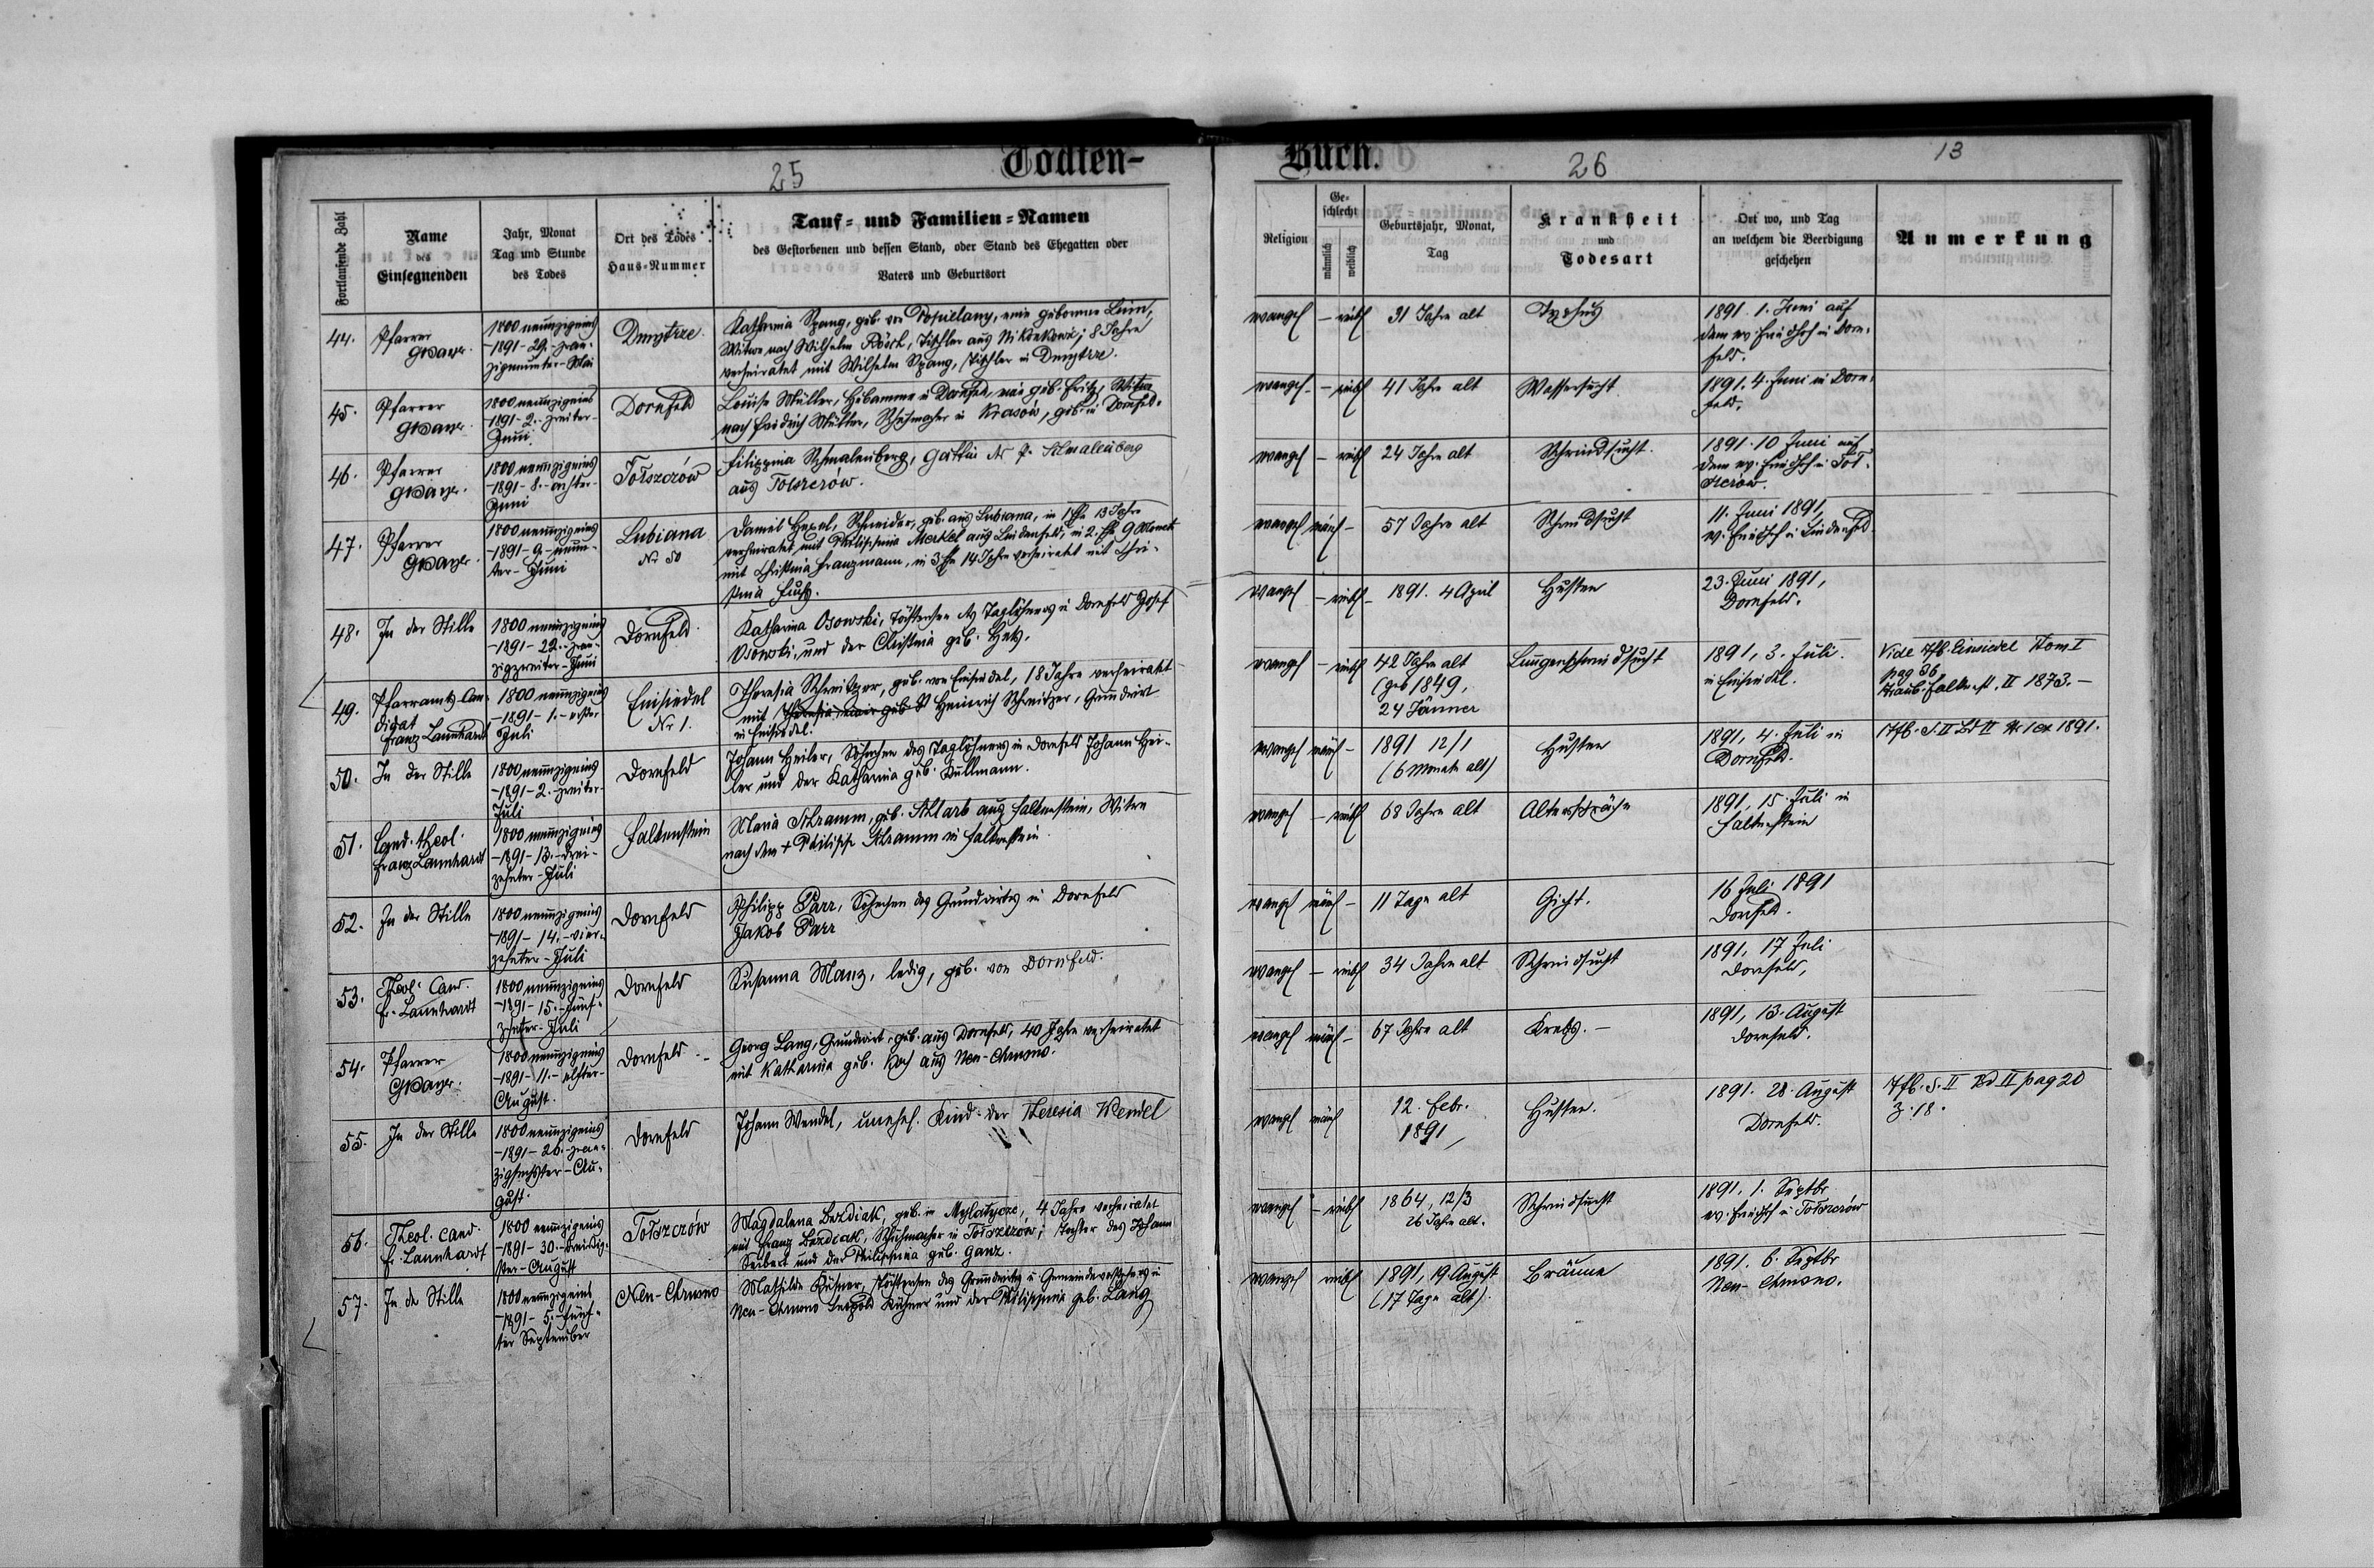 25
Todten-
Buch.
26
13
Fortlaufende Zahl
Name
des
Einsegnenden
Jahr, Monat
Tag und Stunde
des Todes
Ort des Todes
Haus-Nummer
Tauf- und Familien-Namen
des Gestorbenen und dessen Stand, oder Stand des Ehegatten oder
Vaters und Geburtsort
Religion
Ge-
schlecht
männlich
weiblich
Geburtsjahr, Monat,
Tag
Krankheit
und
Todesart
Ort wo, und Tag
an welchem die Beerdigung
geschehen
Anmerkung
44.
Pfarrer
1800 neunzigeins
-1891- 29.-zwan-
zigneunter-Mai
Dmytrze.
Katharina Spang, geb. von
Witwe nach Wilhelm Tischler aus 8 Jahre
verheiratet mit Wilhelm Spang, Tischler in Dmytrze.
evangel – weibl
31 Jahre alt
Typhus
1891. 1. Juni auf
dem ev. Friedhof in Dorn-
feld.
45.
Pfarrer
1800 neunzigeins
-1891-2.-zweiter-
Juni.
Dornfeld
Louise Müller, Hebamme in Dornfeld, geb. Fritz, Witwe
nach Friedrich Müller, Schuhmacher in Krasow, geb. in Dornfeld.
evangel. – weibl
41 Jahre alt
Wassersucht
1891. 4. Juni in Dorn-
feld.
46.
Pfarrer
1800 neunzigeins
-1891-8.-achter-
Juni
Tołszczów
Filippina Schmalenberg, Gattin des P. Schmalenberg
aus Tołszczow.
evangel – weibl
24 Jahre alt
Schwindsucht.
1891. 10 Juni auf
dem ev. Friedhof in Toł-
szczów.
47.
Pfarrer
1800 neunzigeins
-1891-9.-neun-
ter-Juni
Lubiana
Nr. 50
Daniel Schneider, geb. aus Lubiana, in 1 Ehe 13 Jahre
verheiratet mit Philippina Merkel aus Lindenfeld, in 2. Ehe 9 Monate
mit Christina Franzmann, in 3 Ehe 14 Jahre verheiratet mit Chri-
stina Fuchs.
evangel männl –
57 Jahre alt
Schwindsucht
11. Juni 1891,
ev. Friedhof in Lindenfeld
48.
In der Stille
1800 neunzigeins
-1891-22.-zwan-
zigzweiter-Juni
Dornfeld
Katharina Osowski, Töchterchen des Taglöhners in Dornfeld Josef
Osowski und der Christina geb.
evangel – weibl –
1891. 4 April
Husten
23. Juni 1891,
Dornfeld.
49.
Pfarramts Can-
didat
Franz Lannhardt
1800 neunzigeins
-1891-1.-erster
Juli
Einsiedel
Nr. 1.
Theresia Schweitzer, geb. von Einsiedel, 18 Jahre verheiratet
mit Heinrich Schweitzer, Grundwirt
in Einsiedel.
evangel – weibl
42 Jahre alt
(geb 1849,
24 Jänner
Lungenschwindsucht
1891, 3. Juli.
in Einsiedel.
Vide Einsiedel Tom I
pag 36
Falkenst. II 1873.–
50.
In der Stille
1800 neunzigeins
-1891-2.-zweiter-
Juli
Dornfeld
Johann Heiler, Söhnchen des Taglöhners in Dornfeld Johann Hei-
ler und der Katharina geb. Kullmann.
evangel männl –
1891 12/1
(6 Monate alt)
Husten
1891, 4. Juli in
Dornfeld.
51.
Cand. theol.
Franz Lannhardt
1800 neunzigeins
-1891-13.-drei-
zehnter-Juli
Falkenstein
Maria Schramm, geb. aus Falkenstein, Witwe
nach dem + Philipp Schramm in Falkenstein.
evangel – weibl
68 Jahre alt
Altersschwäche
1891, 15. Juli in
Falkenstein
52.
In der Stille
1800 neunzigeins
-1891-14.-vier-
zehnter-Juli
Dornfeld
Philipp Parr, Söhnchen des Grundwirtes in Dornfeld
Jakob Parr
evangel männl –
11 Tage alt
Gicht.
16 Juli 1891
Dornfeld.
53.
Theol. Cand.
Fr. Lannhardt
1800 neunzigeins
-1891-15.-fünf-
zehnter-Juli
Dornfeld
Susanna Manz, ledig, geb. von Dornfeld.
evangel – weibl
34 Jahre alt
Schwindsucht
1891, 17 Juli
Dornfeld,
54.
Pfarrer
1800 neunzigeins
-1891-11.-elfter-
August.
Dornfeld.-
Georg Lang, Grundwirt, geb. aus Dornfeld, 40 Jahre verheiratet
mit Katharina geb. Koch aus Neu-Chrusno.
evangel männl –
67 Jahre alt
Krebs.–
1891, 13. August
Dornfeld.
55.
In der Stille
1800 neunzigeins
-1891-26.-zwan-
zigsechster-Au-
gust.
Dornfeld
Johann Wendel, unehel. Kind der Theresia Wendel
evangel männl
12. Febr.
1891
Husten.
1891. 28. August
Dornfeld.
S. II Bd II pag 20
Z. 18.
56.
Theol. cand.
Fr. Lannhardt
1800 neunzigeins
-1891-30.-dreißig-
ster-August
Tołszczów
Magdalena Bezdiak, geb. in 4 Jahre verheiratet
mit Franz Bezdiak, Schuhmacher in Tołszczów; Tochter des Johann
Seibert und der Philippina geb. Ganz.
evangel – weibl
1864, 12/3
26 Jahre alt.
Schwindsucht
1891. 1. Septbr
ev. Friedhof in Tołszczów
57.
In der Stille
1800 neunzigeins
-1891-5.-fünf-
ter September
Neu-Chrusno
Mathilde Kühner, Töchterchen des Grundwirtes u. Gemeindevorstehers in
Neu-Chrusno Leopold Kühner und der Philippina geb. Lang
evangel weibl
1891, 19 August
(17 Tage alt).
Bräune
1891. 6. Septbr
Neu-Chrusno.